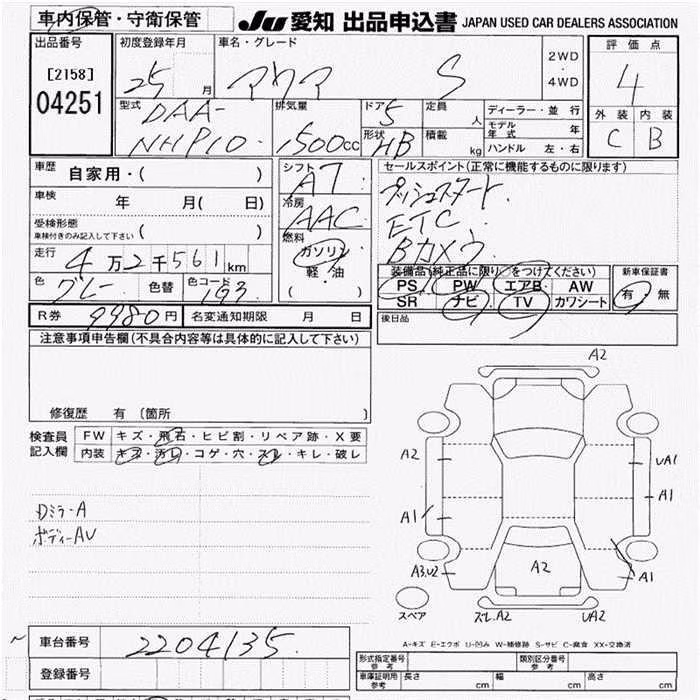 車内保管・守衛保管
JU 愛知 出品申込書 JAPAN USED CAR DEALERS ASSOCIATION
出品番号
[2158]
04251
初度登録年月
25 月
車名・グレード
アクア S
2WD
・
4WD
評価点
4
外装 内装
C B
型式
DAA-
NHP10
排気量
1500cc
ドア
5
形状
HB
定員
人
積載
kg
ディーラー・並行
モデル
年式 年
ハンドル 左・右
車歴 自家用・( )
車検 年 月( 日)
受検形態
車検付きのみ記入して下さい ( )
走行 4万2千561km
色 グレー 色替 色コード 1G3
R券 9980円 名変通知期限 月 日
シフト
AT
冷房
AAC
燃料
ガソリン
軽・油
( )
セールスポイント(正常に機能するものに限ります)
プッシュスタート
ETC
Bカメラ
装備品(純正品に限り○をつけてください)
PS PW エアB AW
SR ナビ TV カワシート
新車保証書
有・無
後日品
注意事項申告欄(不具合内容等は具体的に記入して下さい)
修復歴 有 〔箇所 〕
検査員
記入欄
FW キズ・飛石・ヒビ割・リペア跡・X要
内装 キズ・汚レ・コゲ・穴・スレ・キレ・破レ
Dミラ-A
ボディーAU
A2
A2
UA1
A1
A1
A3.U2
A2
A1
スペア
ズレ.A2
UA2
A-キズ E-エクボ U-凹み W-補修跡 S-サビ C-腐食 XX-交換済
車台番号 2204135
登録番号
形式指定番号
参考
類別区分番号
参考
車庫証明用
参考
長さ cm 幅 cm 高さ cm